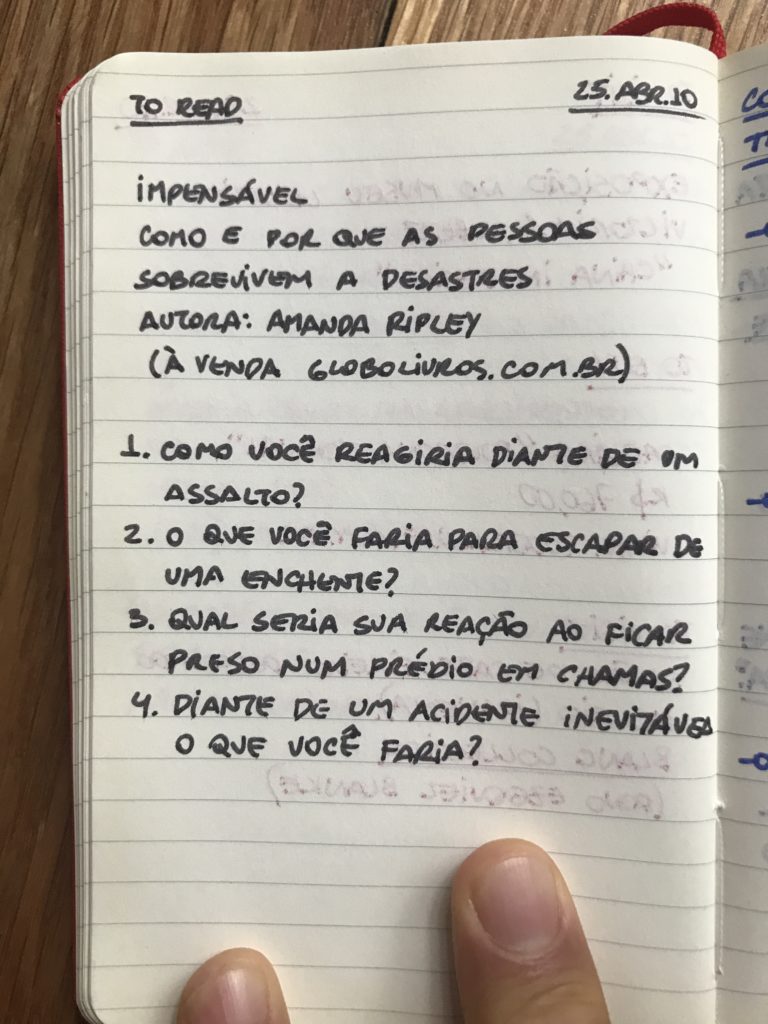 TO READ
25.ABR.10
IMPENSÁVEL
COMO E POR QUE AS PESSOAS
SOBREVIVEM A DESASTRES
AUTORA: AMANDA RIPLEY
(À VENDA GLOBOLIVROS.COM.BR)
1. COMO VOCÊ REAGIRIA DIANTE DE UM
ASSALTO?
2. O QUE VOCÊ FARIA PARA ESCAPAR DE
UMA ENCHENTE?
3. QUAL SERIA SUA REAÇÃO AO FICAR
PRESO NUM PRÉDIO EM CHAMAS?
4. DIANTE DE UM ACIDENTE INEVITÁVEL
O QUE VOCÊ FARIA?